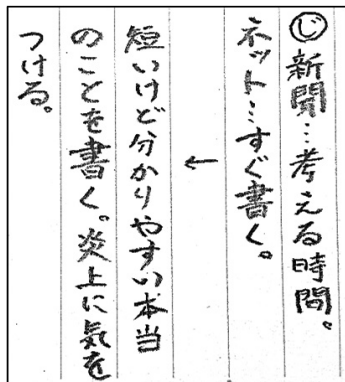 ㋛新聞…考える時間。
ネット…すぐ書く。
↓
短いけど分かりやすい本当
のことを書く。炎上に気を
つける。